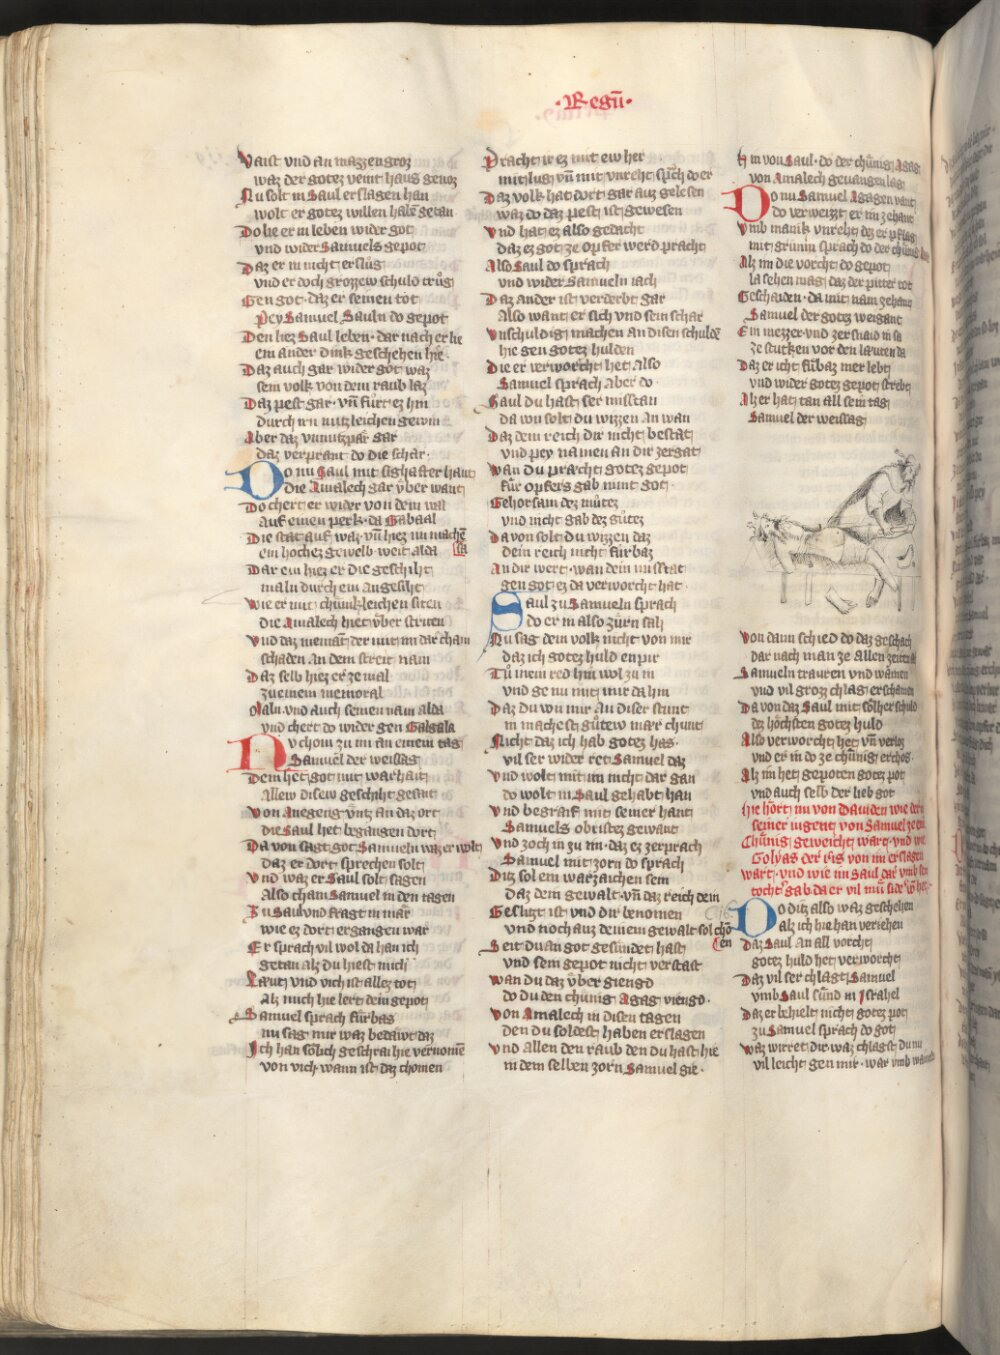 ·Regū·
Vaist vnd an mazzen groz
waz der gotez veint haus genoz
Nu solt in Saul erslagen han
wolt er gotez willen habē getan
Do lie er in leben wider got
vnd wider Samuels gepot
Daz er in nicht erslůg
vnd er doch grozzew schuld trůg
Gen got · daz er seinen tot
Pey Samuel Sauln do gepot
Den liez Saul leben · dar nach er lie
ein ander dink geschehen hie
Daz auch gar wider got waz
sein volk von dem raub laz
Daz pest gar · vñ fůrt ez hin
durch irn nutzleichen gewin
Aber daz vnnutzpär gar
daz verprant do die schar ·
Do nu Saul mit sighafter hant
die Amalech gar v̊ber want
Do chert er wider von dem wal
auf einen perk · da Gabaal
Die stat auf waz · vñ hiez im machē
ein hochez gewelb weit alda
Dar ein hiez er die geschiht
maln durch ein angesiht
Wie er mit chůnkleichen siten
die Amalech het v̊ber striten
Vnd daz niemāt der mit im dar cham
schaden an dem streit nam
Daz selb hiez er ze mal
zu einem memoral
Maln · vnd auch seinen nam alda
vnd chert do wider gen Galgala
Nv chom zu im an einem tag
Samuel der weissag
Dem het got mit warhait
allew disew geschiht gesait
Von anegeng vntz an daz ort
die Saul het begangen dort
Da von sagt got Samueln waz er wolt
daz er dort sprechen solt
Vnd waz er Saul solt sagen
Also cham Samuel in den tagen
Zu Saul vnd fragt in mär
wie ez dort ergangen wär
Er sprach vil wol da han ich
getan alz du hiest mich
Laut vnd vich ist allez tot
Alz mich hie lert dein gepot
Samuel sprach fůrbas
nu sag mir waz bedäwt daz
Ich han sőlich geschrai hie vernomē
von vich · wann ist daz chomen
Pracht ir ez mit ew her
mit lug vñ mit vnreht spᵃch do er
Daz volk hat dort gar auz gelesen
waz do daz pest ist gewesen
Vnd hat ez also gedacht
daz ez got ze opfer werd pracht
Also Saul do sprach
vnd wider Samueln iach
Daz ander ist verderbt gar
Also want er sich vnd sein schar
Vnschuldig machen an disen schulde
hie gen gotez hulden
Die er verworcht het also
Samuel sprach aber do ·
Saul du hast ser misstan
da von solt du wizzen an wan
Daz dein reich dir nicht bestat
vnd pey namen an dir zergat
Wan du pracht gotez gepot
fůr opfers gab nimt got ·
Gehorsam dez můtez
vnd nicht gab dez gůtez
Da von solt du wizzen daz
dein reich nicht fůrbaz
An dir wert · wan dein misstat
gen got ez da verworcht hat ·
Saul zu Samueln sprach
do er in also zürn sah
Nu sag dem volk nicht von mir
daz ich gotez huld enpir
Tů in ein red him wol zu in
vnd ge nu mit mir da hin
Daz du von mir an diser stunt
in machest gůtew mär chunt
Nicht daz ich hab gotez has ·
vil ser wider ret Samuel daz
Vnd wolt mit im nicht dar gan
do wolt in Saul gehabt han
Vnd begraif mit seiner hant
Samuels obristez gewant
Vnd zoch in zu im · daz ez zerprach
Samuel mit zorn do sprach
Ditz sol ein warzaichen sein
daz dein gewalt · vñ daz reich dein
Geslizt ist vnd dir benomen
vnd noch auz deinem gewalt sol chō
en
Seit du an got gesündet hast
vnd sein gepot nicht verstast
Wan du daz v̊ber giengd
do du den chunig Agag viengd ·
Von Amalech in disen tagen
den du soldest haben erslagen
Vnd allen den raub den du hast hie
in dem selben zorn Samuel gie ·
Hin von Saul · do der chůnig Agag
von Amalech geuangen lag
Do nu Samuel Agagen vant
do verweizt er im zehant
Vmb manik vnreht dez er pflag
mit grimm sprach do der
Alz im die vorcht do gepot
la sehen mag daz der pitter tot
Geschaiden · da mit nam zehant
Samuel der gotez weigant
Ein mezzer · vnd zersnaid in sa
ze stucken vor den lauten da
Daz er icht fůrbaz mer lebt
vnd wider gotez gepot strebt
Alz er hat tan all sein tag
Samuel der weissag
Von dann schied do daz geschach
dar nach man ze allen
Samueln trauren vnd wainen
vnd vil grozz chlag erschainen
Da von daz Saul mit sölher schuld
dez höchsten gotez huld
Also verworcht het vñ verloz
vnd er in do ze chůnig erchos ·
Alz im het gepoten gotez pot
vnd auch selb der lieb got
Hie hört nu von Dauiden wie der in
seiner iugent von Samuel ze
Chůnig geweicht wart · vnd wie
Golyas der ris von im erslagen
wart · vnd wie im Saul dar vmb sein
tocht gab da er vil
Do ditz also waz geschehen
alz ich hie han veriehen
Daz Saul an all vorcht
gotez huld het verworcht
Daz vil ser chlagt Samuel
vmb Saul sünd in Israhel
Daz er behielt nicht gotez pot
zu Samuel sprach do got
Waz wirret dir · waz chlagst du nu
vil leicht gen mir · war vmb